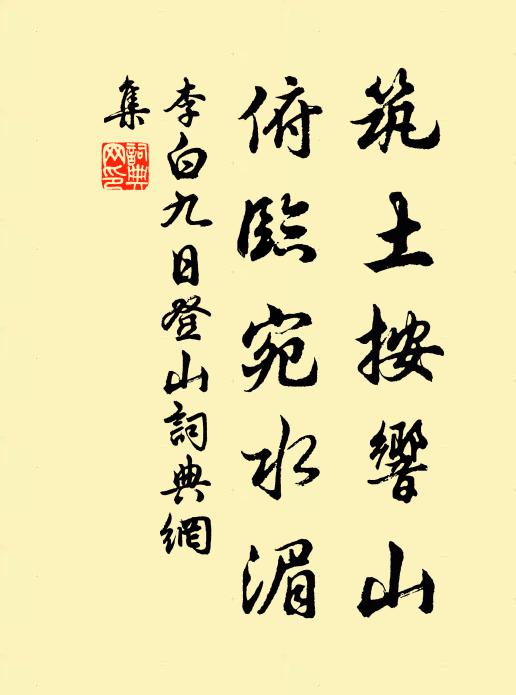 筑土按響山
俯臨宛水湄
李白九日登山詞典網
集
詞典
网印